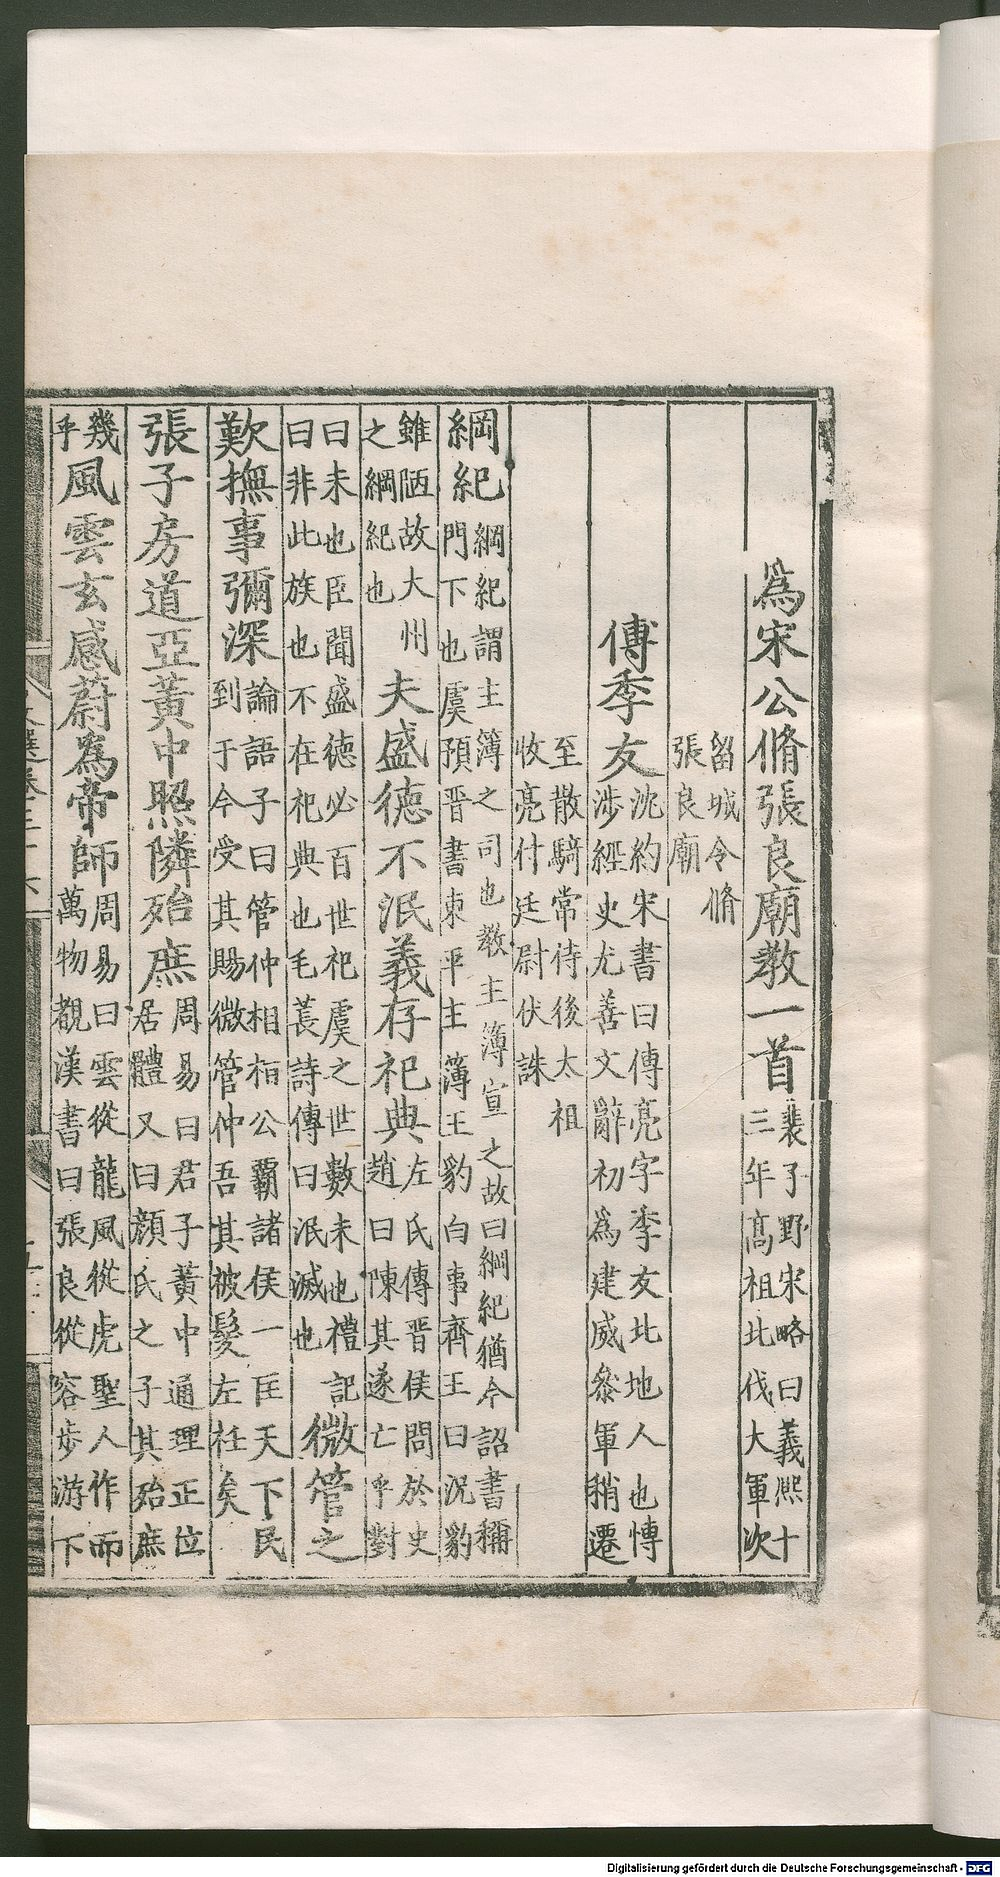 爲宋公脩張良廟教一首裴子野宋略曰義熈十
三年髙祖北伐大軍次
留城令脩
張良廟
傅季友沈約宋書曰傅亮字季友北地人也博
涉經史尤善文辭初爲建威參軍稍遷
至散騎常侍後太祖
收亮付廷尉伏誅
綱紀綱紀謂主簿之司也教主簿宣之故曰綱紀猶今詔書稱
門下也虞預晉書東平主簿王豹白事齊王曰況豹
雖陋故大州
之綱紀也
夫盛德不泯義存祀典左氏傳晉侯問於史
趙曰陳其遂亡乎對
曰未也臣聞盛德必百世祀虞之世數未也禮記
曰非此族也不在祀典也毛萇詩傳曰泯滅也
微管之
歎撫事彌深論語子曰管仲相桓公霸諸侯一匡天下民
到于今受其賜微管仲吾其被髮左衽矣
張子房道亞黃中照隣殆庶周易曰君子黃中通理正位
居體又曰顏氏之子其殆庶
幾
乎
風雲玄感蔚爲帝師周易曰雲從龍風從虎聖人作而
萬物覩漢書曰張良從容步游下
Digitalisierung gefördert durch die Deutsche Forschungsgemeinschaft - DFG